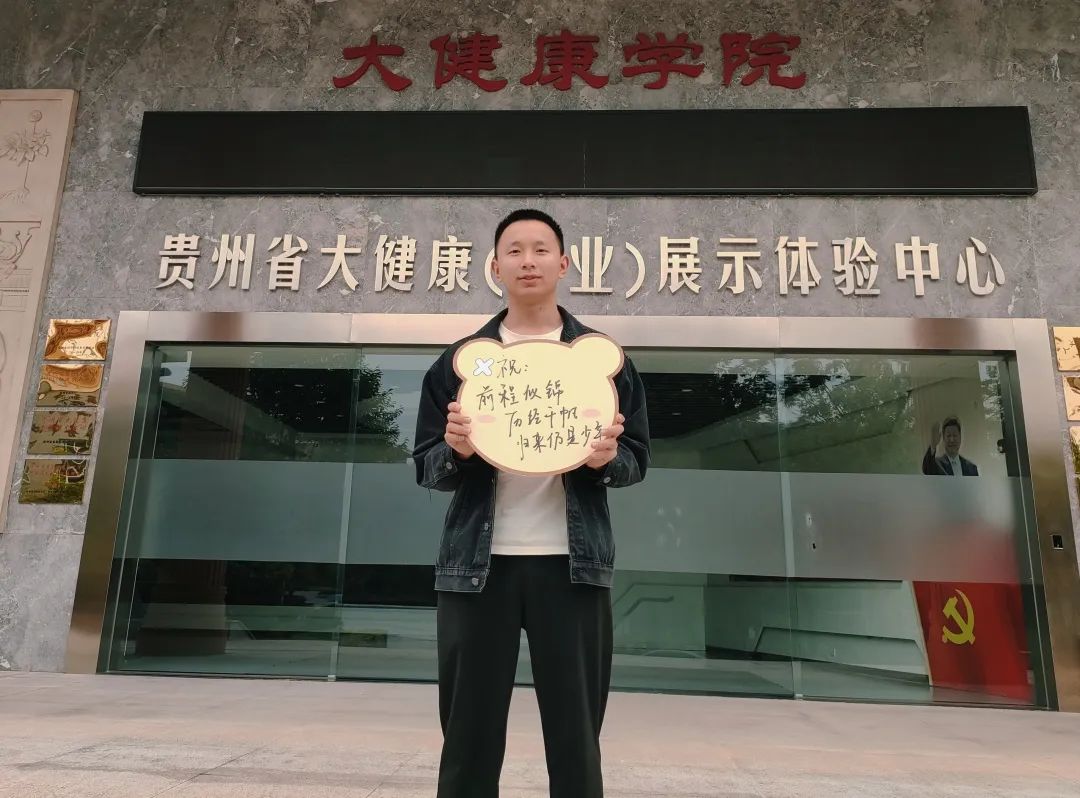 大健康学院
贵州省大健康(业)展示体验中心
祝:
前程似锦
历经千帆
归来仍是少年